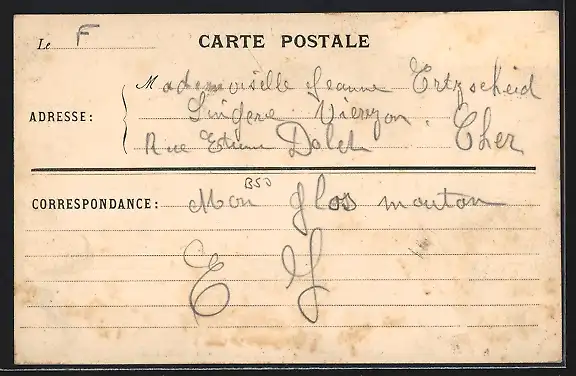 Le F
CARTE POSTALE
Mademoiselle Jeanne Ertzscheid
ADRESSE: Lingère Vierzon. Cher
Rue Etienne Dolet
B50
CORRESPONDANCE: Mon glos mouton
E J